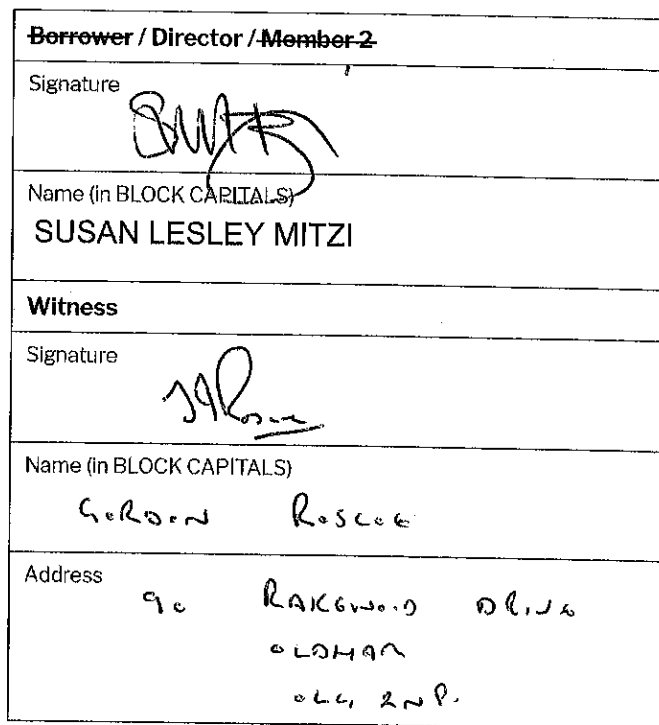 Borrower / Director / Member 2
Signature
Name (in BLOCK CAPITALS)
SUSAN LESLEY MITZI
Witness
Signature
Name (in BLOCK CAPITALS)
GORDON ROSCOE
Address
90 RAKEWOOD DRIVE
OLDHAM
OL4 2NP.